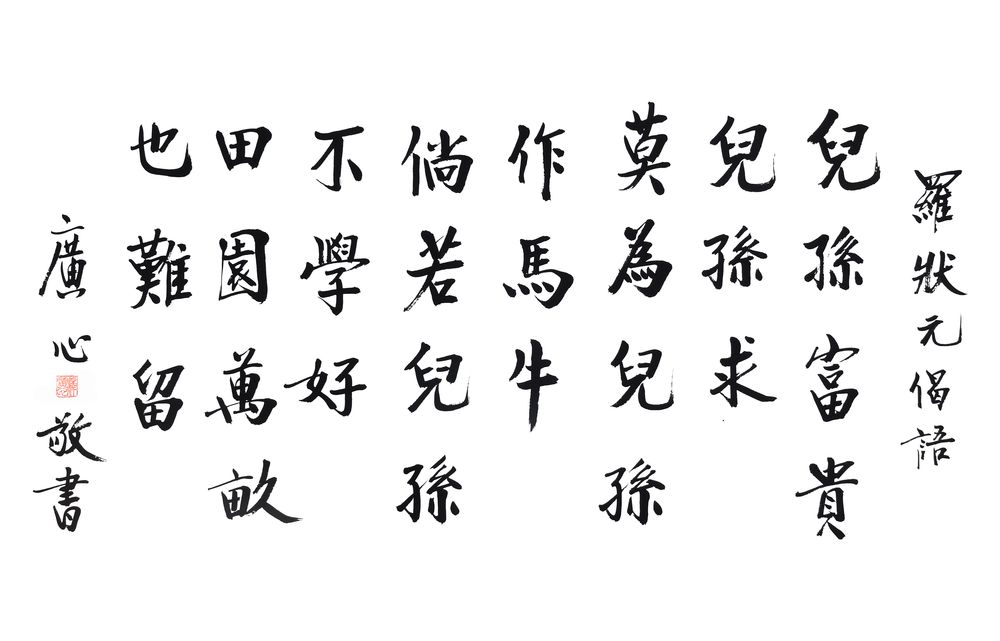 羅狀元偈語
兒孫富貴
兒孫求
莫為兒孫
作馬牛
倘若兒孫
不學好
田園萬畝
也難留
廣心敬書